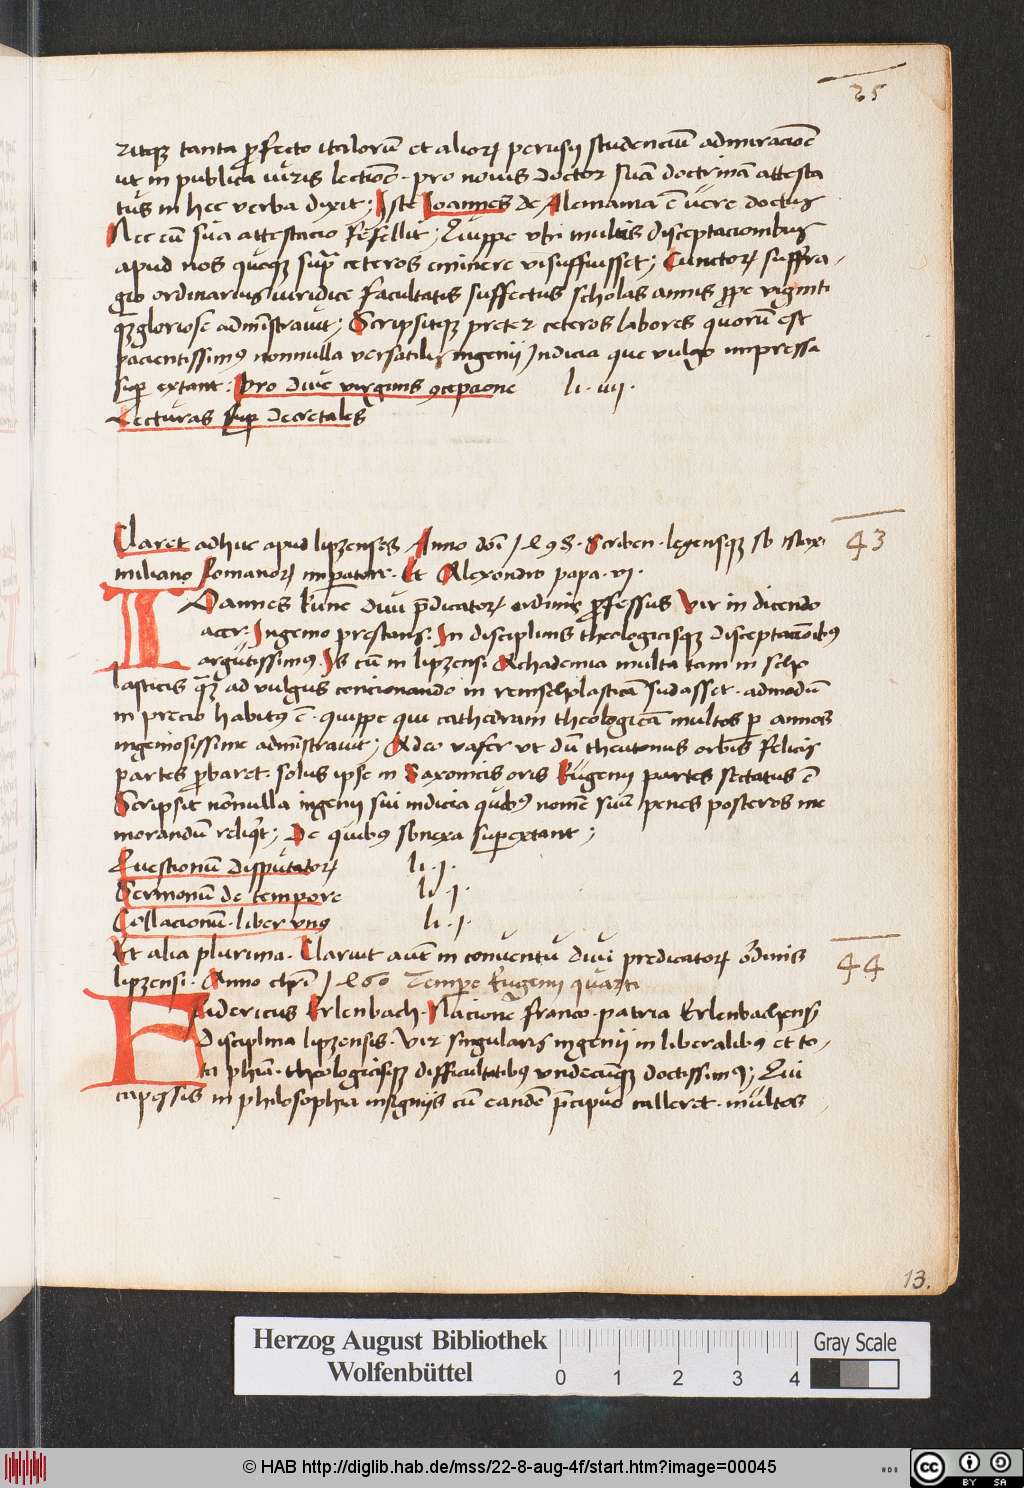 25
ritqꝫ tanta ꝓfecto italorū et aliorꝝ perusij studenciū admiracioē
ut in publica iuris lectiōe · pro nouis doctor suā doctrinā attesta
tus in hec verba dixit ; Iste Ioannes de Alemania ē vere doctus
Nec eū sua attestacio fefellit ; Quippe vbi multis disceptacionibus
apud nos queqꝫ supra ceteros eminere visus fuisset ; Cunctorꝝ suffra-
gio ordinarius iuridice facultatis suffectus scholas annis ꝓpe viginti
qꝫ gloriose admīstrauit ; Scripsitqꝫ preter ceteros labores quorū est
pacientissimꝰ nonnulla versatilis ingenij Indicia que vulgo impressa
suꝑ extant : Pro diue virginis ꝯcepcione li · iiij ·
Lecturas suꝑ decretales
Claret adhuc apud lipzenses Anno doī 1498 · Scriben · legensqꝫ sb Max
43
miliano Romanorꝝ imperatore · Et Alexandro papa · vi ·
IOannes kune diui p̄dicatorꝝ ordinis ꝓfessus Vir in dicendo
acer · Ingenio prestans · In disciplinis theologicisqꝫ disceptacōibꝰ
argutissimꝰ · Is cū in lipzensi Achademia multa tam in scho
lasticis qꝫ ad vulgus concionando in rem scholasticā sudasset · admodū
in precio habitꝰ ē · quippe qui cathedram theologicā multos ꝑ annos
ingeniosissime admīstrauit ; Adeo vafer vt dū theutonus orbis felicis
partes ꝓbaret · solus ipse in Saxonicis oris Eugenij partes sectatus ē
Scripsit nōnulla ingenij sui indicia quibꝰ nomē suū penes posteros me
morandū reliqͥt ; De quibus sbnexa suꝑextant ;
Questionū disputatorꝝ li · j ·
Sermonū de tempore li · j ·
Collacionū · liber vnꝰ li · j ·
Et alia plurima · Claruit aūt in conuentu diui predicatorꝝ ordinis
44
lipzensi · Anno chrī 1460 Tempore Eugenij quarti
FRidericus Erlenbach · Nacione franco · patria Erlenbachensis
Disciplina lipzensis · Vir singularis ingenij in liberalibꝰ et to-
ta phīa · theologicisqꝫ difficultatibꝰ vndecūqꝫ doctissimꝰ ; Qui
capessis in philosophia insignijs cū eandē p̄cipue calleret · multos
13.
Herzog August Bibliothek
Wolfenbüttel
0 1 2 3 4
Gray Scale
© HAB http://diglib.hab.de/mss/22-8-aug-4f/start.htm?image=00045
HAB
cc BY SA